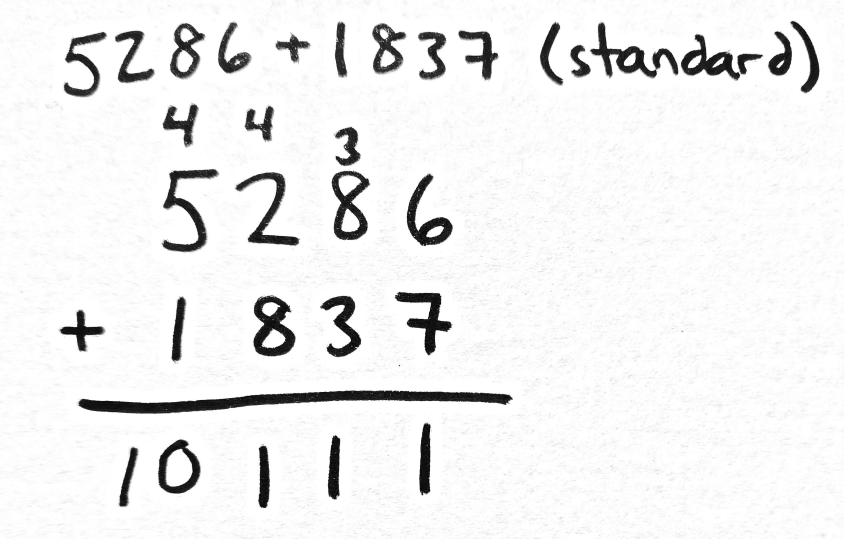 5286+1837 (standard)
4 4 3
5286
+ 1837
10111